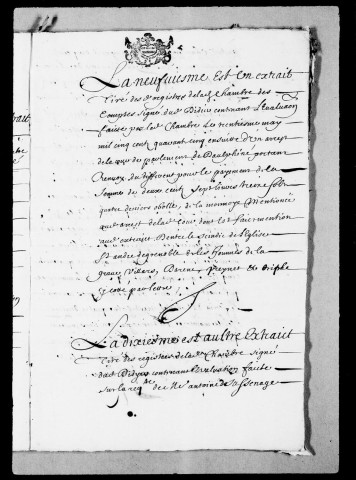 La neufuiesme est un extraict
tiré des registres de la Chambre des
Comptes signé du Bidius contenant l'Evaluaon
faicte par lad Chambre Le trentiesme may
mil cinq cent quarante cinq ensuitte d'un arrest
de la cour du parlement de Dauphiné portant
du different pour le payement de la
somme de deux cent sept livres treize solz
quatre deniers obolle, de la monnoye mentionée
aud arrest de la Cour dont est faict mention
aud extraict Entre le scindic de l'Eglise
St André de grenoble & les hommes de la
graue, Villars, Peynet &
& cotté par lettre
La dixiesme est aultre Extraict
tiré des registres de lad Chambre signé
dud Bidyus contenant l'Evaluation faicte
sur la req de Mre Antoine de Sassenage